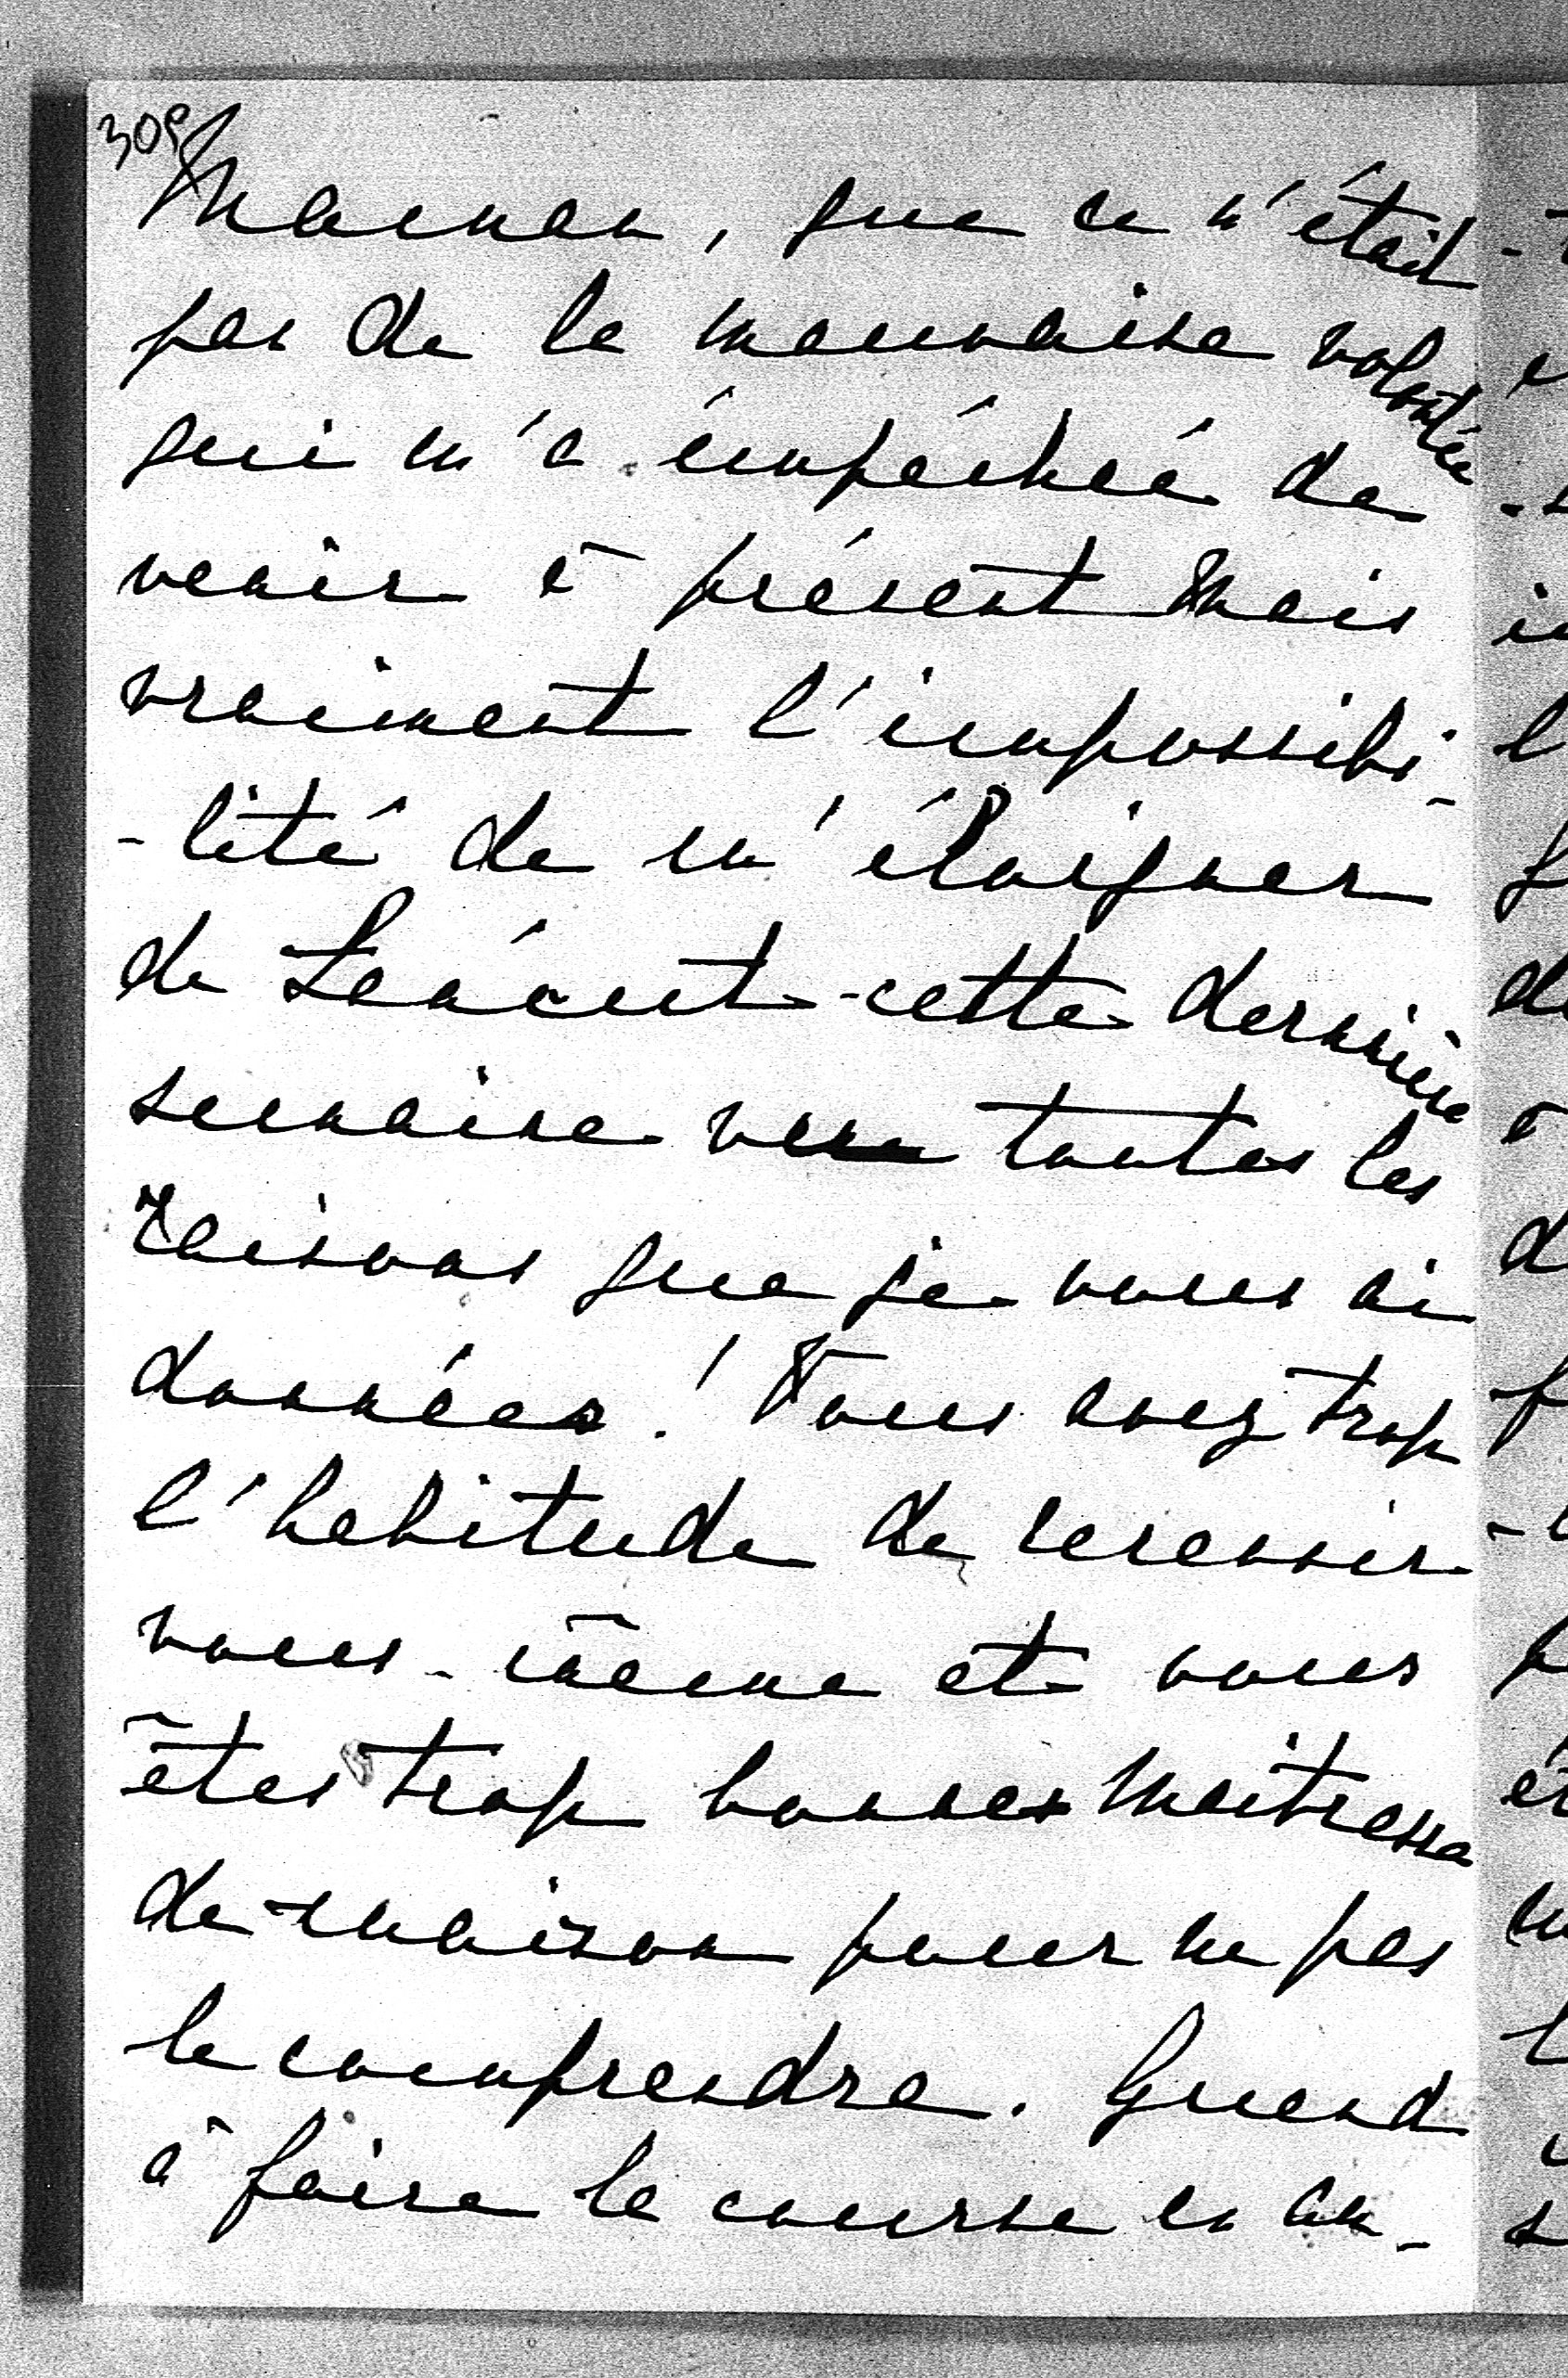 309
Maman, que ce n'était
pas de la mauvaise volontée
qui m'a émpéchée de
venir à présent mais
vraiment l'impossibi-
-lité de m'éloigner
de cette dernière
semaine toutes les
raisons que je vous ai
données! Vous avez trop
l'habitude de recevoir
vous-même et vous
êtes trop bonnes maitresse
de maison pour ne pas
le comprendre. Quand
à faire la course en au-